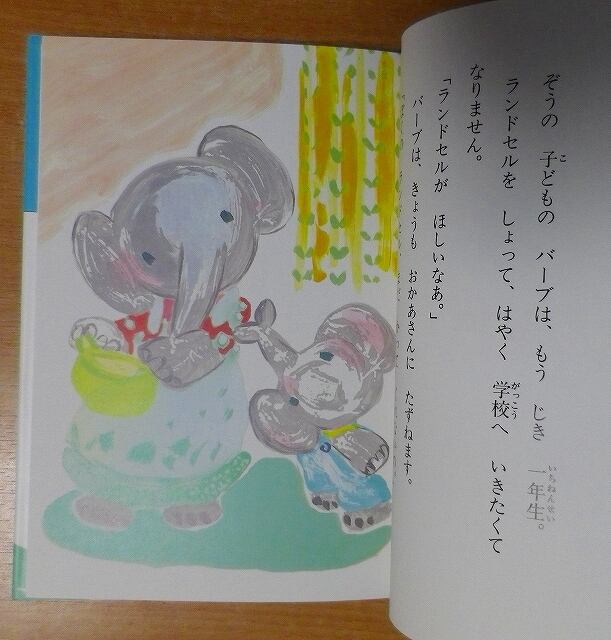 ぞうの 子どもの バーブは、もう じき 一年生。
ランドセルを しょって、はやく 学校へ いきたくて
なりません。
「ランドセルが ほしいなあ。」
バーブは、きょうも おかあさんに たずねます。